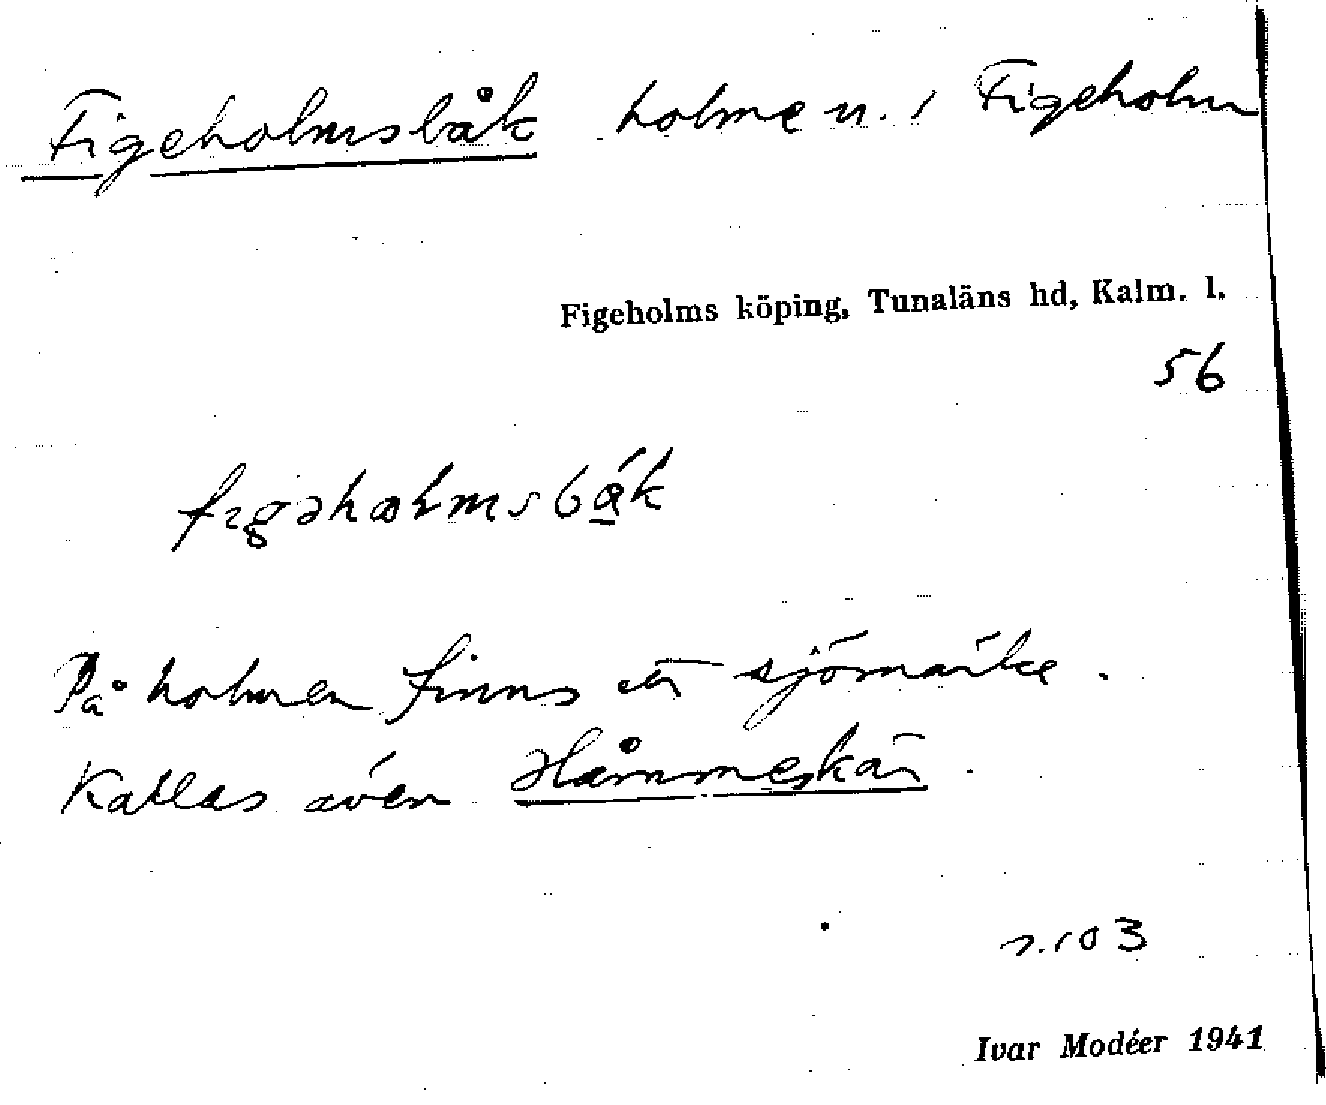 Figeholmsbåk holme n. i Figeholm
Figeholms köping, Tunaläns hd, Kalm. l.
56
På holmen finns ett sjömärke.
Kallas även Håmmeskär.
s. 103
Ivar Modéer 1941